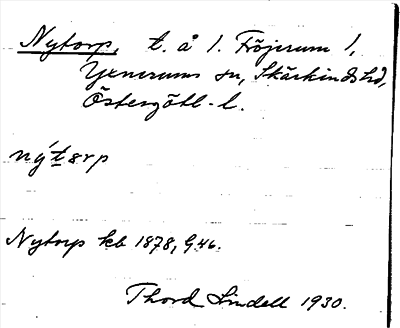 Nytorp, t. å l. Fröjerum l,
Yxnerums sn, Skärkinds hd,
Östergötl. l.
nýtærp
Nytorp kb 1878, G46.
Thord Lindell 1930.